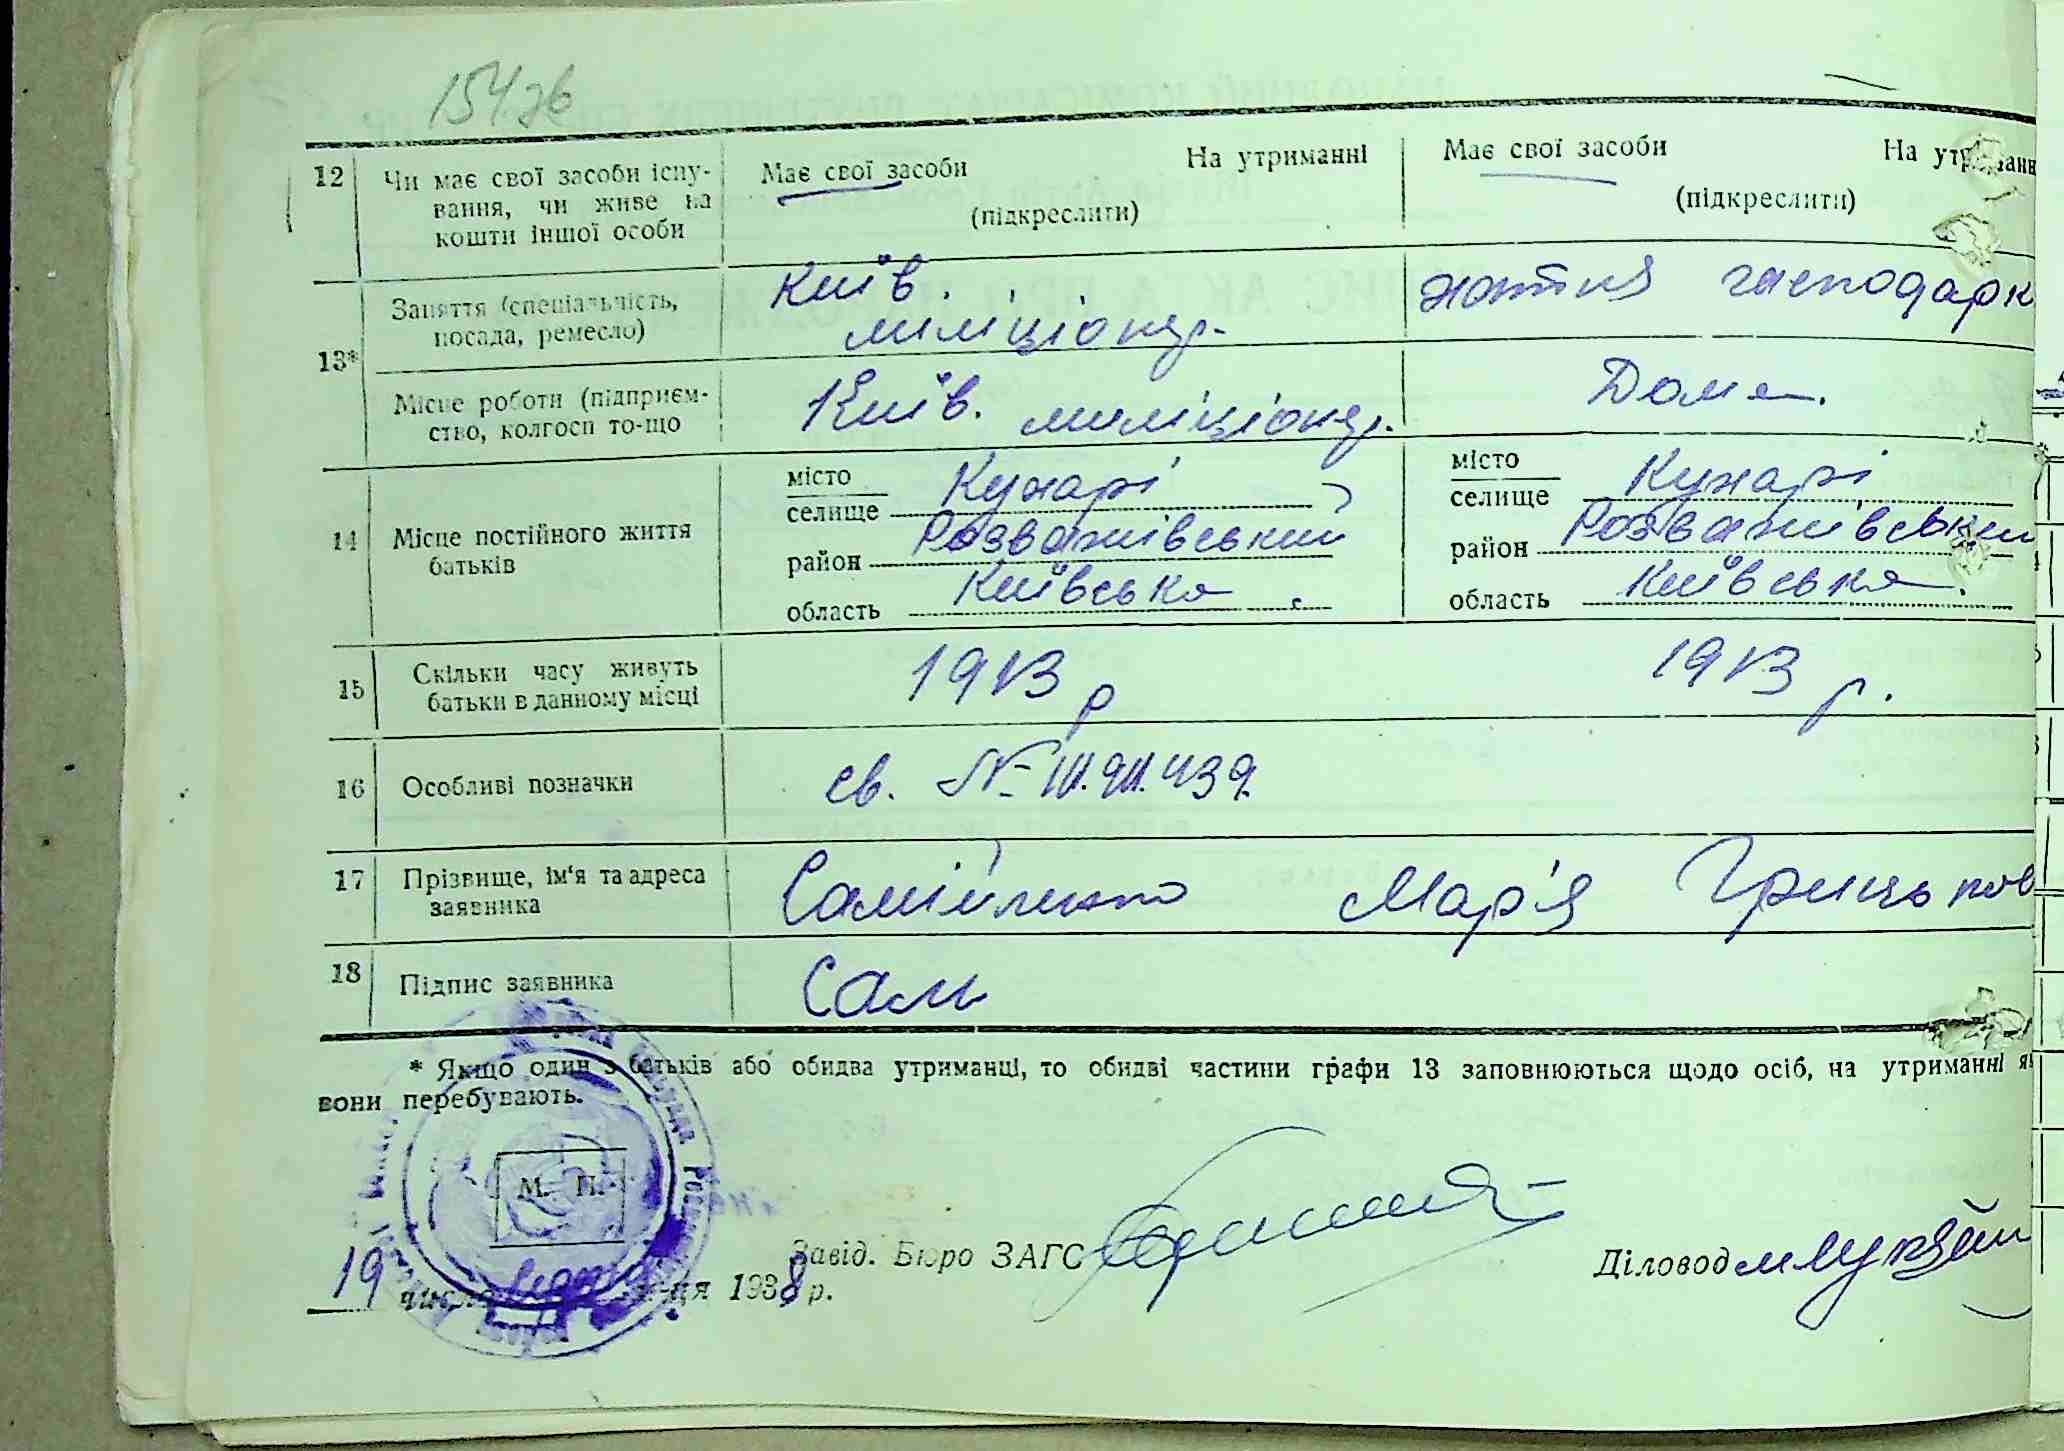 154зв
12 Чи має свої засоби існу-
вання, чи живе на
кошти іншої особи
Має свої засоби На утриманні
(підкреслити)
Має свої засоби На утриманн
(підкреслити)
13*
Заняття (спеціальність,
посада, ремесло)
Київ.
міліціонер.
хатня господарк
Місце роботи (підприєм-
ство, колгосп то-що
Київ. міліціонер.
Дома.
14 Місце постійного життя
батьків
місто
селище Кухарі
район Розважівський
область Київська
місто
селище Кухарі
район Розважівський
область Київська.
15 Скільки часу живуть
батьки в данному місці
1913 р
1913 р.
16 Особливі позначки
св. №
17 Прізвище, ім'я та адреса
заявника
Самійленко Мар'я Гриньков
18 Підпис заявника
Сам
* Якщо один з батьків або обидва утриманці, то обидві частини графи 13 заповнюються щодо осіб, на утриманні я
вони перебувають.
М. П.
Завід. Бюро ЗАГС
Діловод
19 числа м-ця 1938 р.